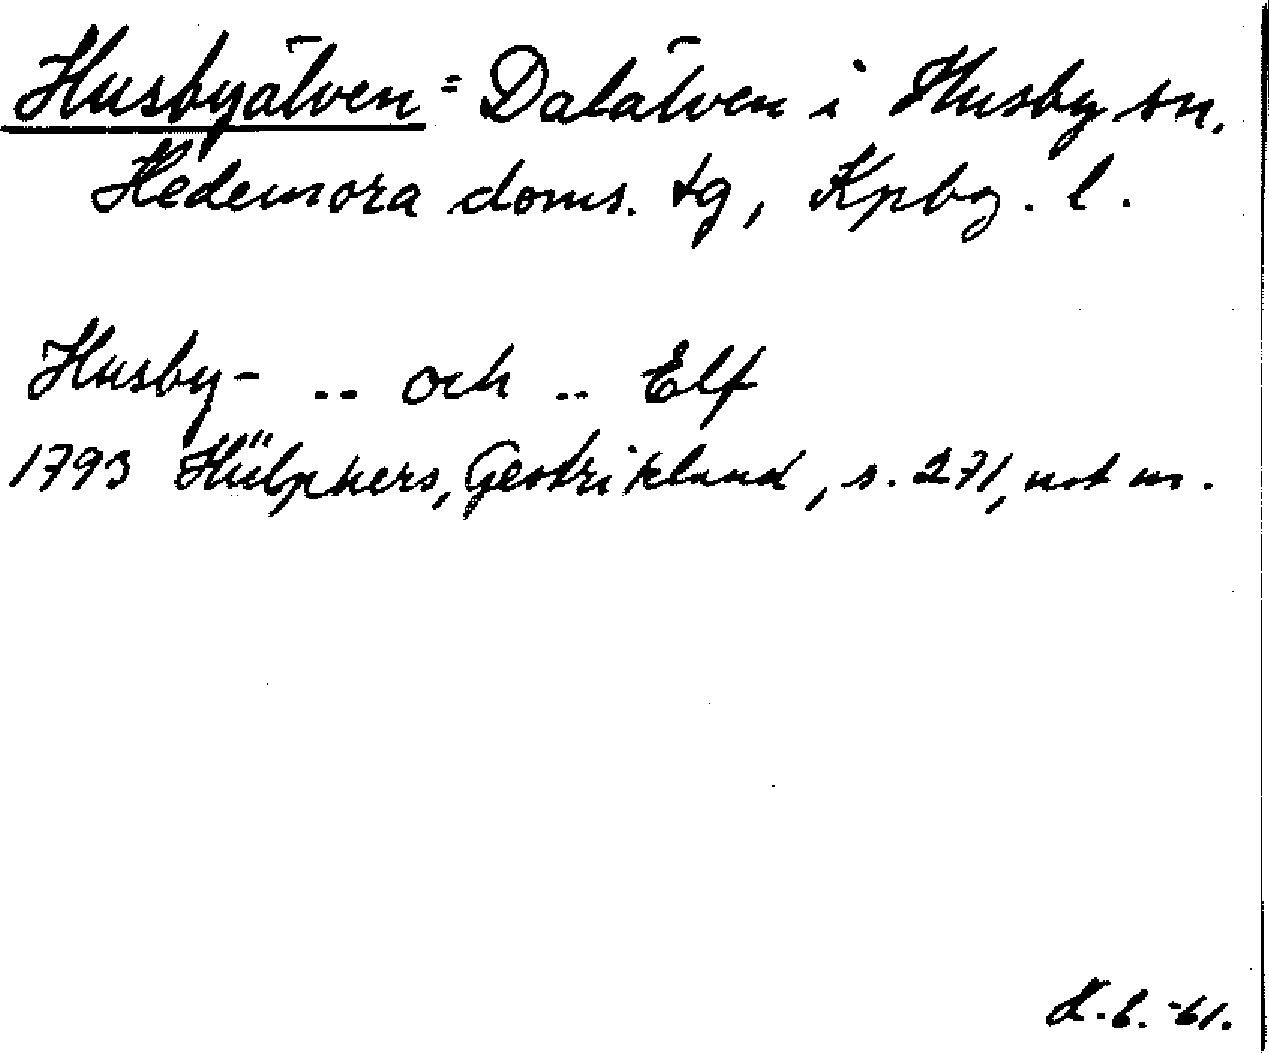 Husbyälven = Dalälven i Husby sn.
Hedemora doms. tg, Kpbg. l.
Husby- .. och .. Elf
1793 Hülphers, Gestrikland, s. 271, not m.
H.b. -61.